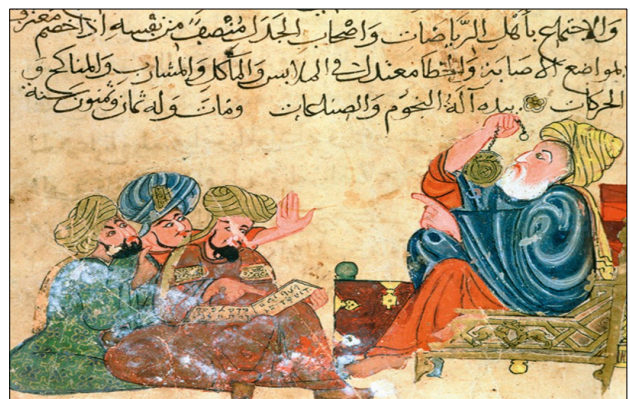 والاجتماع بأهل الرياضات واصحاب الجدل منتصف من نفسه اذا خصم معترف
بمواضع الاصابة والخطا معتدل في الملابس والمآكل والمشارب والمناكح و
الحركات بيده آلة النجوم ومات وله ثمان وستون سنة